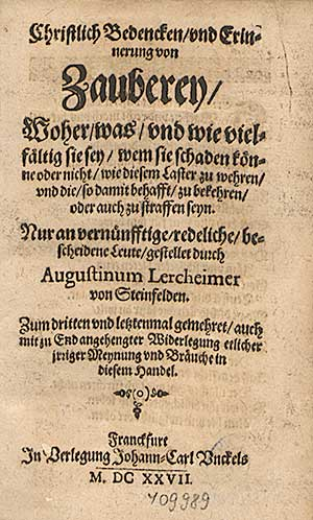 Christlich Bedencken/vnd Erin-
nerung von
Zauberey/
Woher/was/vnd wie viel-
fältig sie sey/wem sie schaden kön-
ne oder nicht/wie diesem Laster zu wehren/
vnd die/so damit behafft/zu bekehren/
oder auch zu straffen seyn.
Nur an vernünfftige/redeliche/be-
scheidene Leute/gestellet durch
Augustinum Lercheimer
von Steinfelden.
Zum dritten vnd letztenmal gemehret/auch
mit zu End angehengter Widerlegung etlicher
jrriger Meynung vnd Bräuche in
diesem Handel.
Franckfurt
In Verlegung Johann-Carl Vnckels
M. DC XXVII.
709989